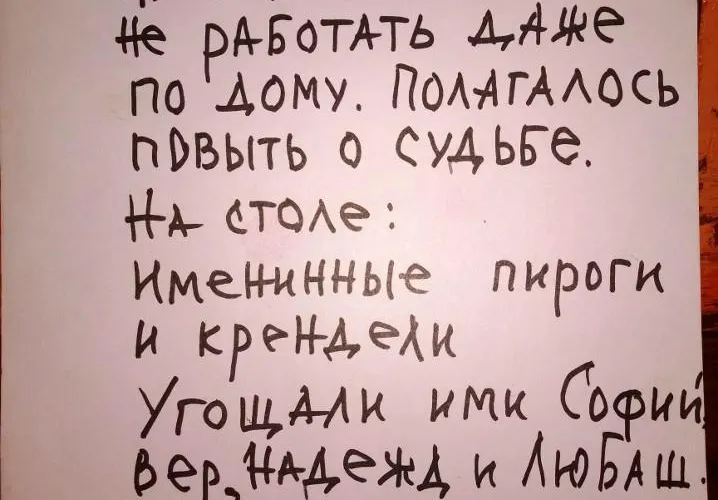 Не РАБОТАТЬ ДАЖе
ПО ДОМУ. ПОЛАГАЛОСЬ
ПОВЫТЬ О СУДЬБЕ.
НА СТОЛе:
ИМЕНИННЫЕ ПИРОГИ
И КРЕНДЕЛИ
УГОЩАЛИ ИМИ СОФИЙ,
ВЕР, НАДЕЖД И ЛЮБАШ.